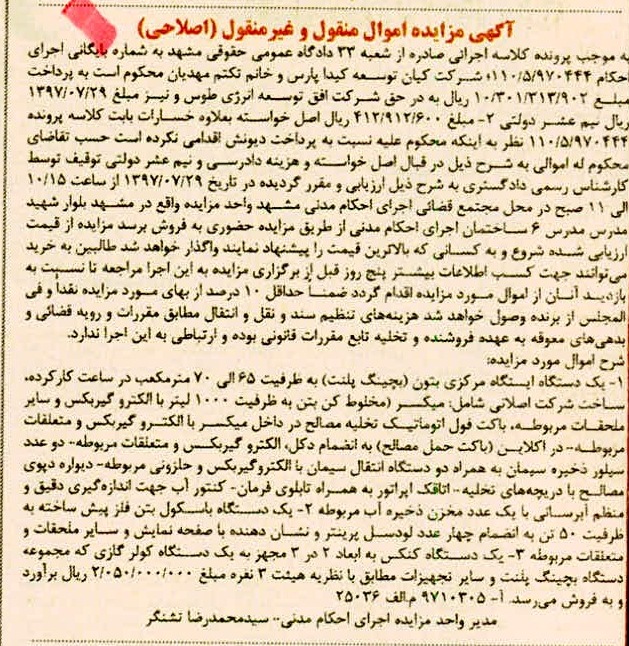 آگهی مزایده اموال منقول و غیرمنقول (اصلاحی)
به موجب پرونده کلاسه اجرائی صادره از شعبه ۳۳ دادگاه عمومی حقوقی مشهد به شماره بایگانی اجرای
احکام ۱۱۰/۵/۹۷۰۴۴۴ شرکت کیان توسعه کیدا پارس و خانم تکتم مهدیان محکوم است به پرداخت
مبلغ ۱۰/۳۰۱/۳۱۳/۹۰۲ ریال به در حق شرکت افق توسعه انرژی طوس و نیز مبلغ ۱۳۹۷/۰۷/۲۹
ریال نیم عشر دولتی ۲- مبلغ ۴۱۲/۹۱۲/۶۰۰ ریال اصل خواسته بعلاوه خسارات بابت کلاسه پرونده
۱۱۰/۵/۹۷۰۴۴۴ نظر به اینکه محکوم علیه نسبت به پرداخت دیونش اقدامی نکرده است حسب تقاضای
محکوم له اموالی به شرح ذیل در قبال اصل خواسته و هزینه دادرسی و نیم عشر دولتی توقیف توسط
کارشناس رسمی دادگستری به شرح ذیل ارزیابی و مقرر گردیده در تاریخ ۱۳۹۷/۰۷/۲۹ از ساعت ۱۰/۱۵
الی ۱۱ صبح در محل مجتمع قضائی اجرای احکام مدنی مشهد واحد مزایده واقع در مشهد بلوار شهید
مدرس مدرس ۶ ساختمان اجرای احکام مدنی از طریق مزایده حضوری به فروش برسد مزایده از قیمت
ارزیابی شده شروع و به کسانی که بالاترین قیمت را پیشنهاد نمایند واگذار خواهد شد طالبین به خرید
می‌توانند جهت کسب اطلاعات بیشتر پنج روز قبل از برگزاری مزایده به این اجرا مراجعه تا نسبت به
بازدید آنان از اموال مورد مزایده اقدام گردد ضمناً حداقل ۱۰ درصد از بهای مورد مزایده نقداً و فی
المجلس از برنده وصول خواهد شد هزینه‌های تنظیم سند و نقل و انتقال مطابق مقررات و رویه قضائی و
بدهی‌های معوقه به عهده فروشنده و تخلیه تابع مقررات قانونی بوده و ارتباطی به این اجرا ندارد.
شرح اموال مورد مزایده:
۱- یک دستگاه ایستگاه مرکزی بتون (بچینگ پلنت) به ظرفیت ۶۵ الی ۷۰ مترمکعب در ساعت کارکرده،
ساخت شرکت اصلانی شامل: میکسر (مخلوط کن بتن به ظرفیت ۱۰۰۰ لیتر با الکترو گیربکس و سایر
ملحقات مربوطه، باکت فول اتوماتیک تخلیه مصالح در داخل میکسر با الکترو گیربکس و متعلقات
مربوطه-- در اکلاین (باکت حمل مصالح) به انضمام دکل، الکترو گیربکس و متعلقات مربوطه- دو عدد
سیلور ذخیره سیمان به همراه دو دستگاه انتقال سیمان با الکتروگیربکس و حلزونی مربوطه- دیواره دپوی
مصالح با دریچه‌های تخلیه-- اتاقک اپراتور به همراه تابلوی فرمان- کنتور آب جهت اندازه‌گیری دقیق و
منظم آبرسانی با یک عدد مخزن ذخیره آب مربوطه ۲- یک دستگاه باسکول بتن فلز پیش ساخته به
ظرفیت ۵۰ تن به انضمام چهار عدد لودسل پرینتر و نشان دهنده با صفحه نمایش و سایر ملحقات و
متعلقات مربوطه ۳- یک دستگاه کنکس به ابعاد ۲ در ۳ مجهز به یک دستگاه کولر گازی که مجموعه
دستگاه بچینگ پلنت و سایر تجهیزات مطابق با نظریه هیئت ۳ نفره مبلغ ۲/۰۵۰/۰۰۰/۰۰۰ ریال برآورد
و به فروش می‌رسد. آ- ۹۷۱۰۳۰۵ م.الف ۲۵۰۳۶
مدیر واحد مزایده اجرای احکام مدنی-- سیدمحمدرضا تشنگر